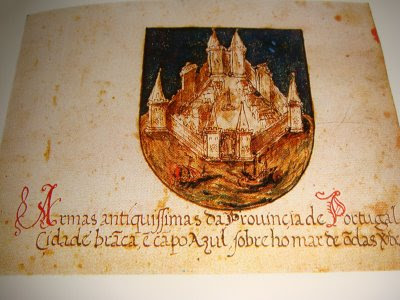 Armas antiquissimas da Prouincia de Portugal
Cidade brãca ẽ cãpo Azul sobre ho mar de õdas